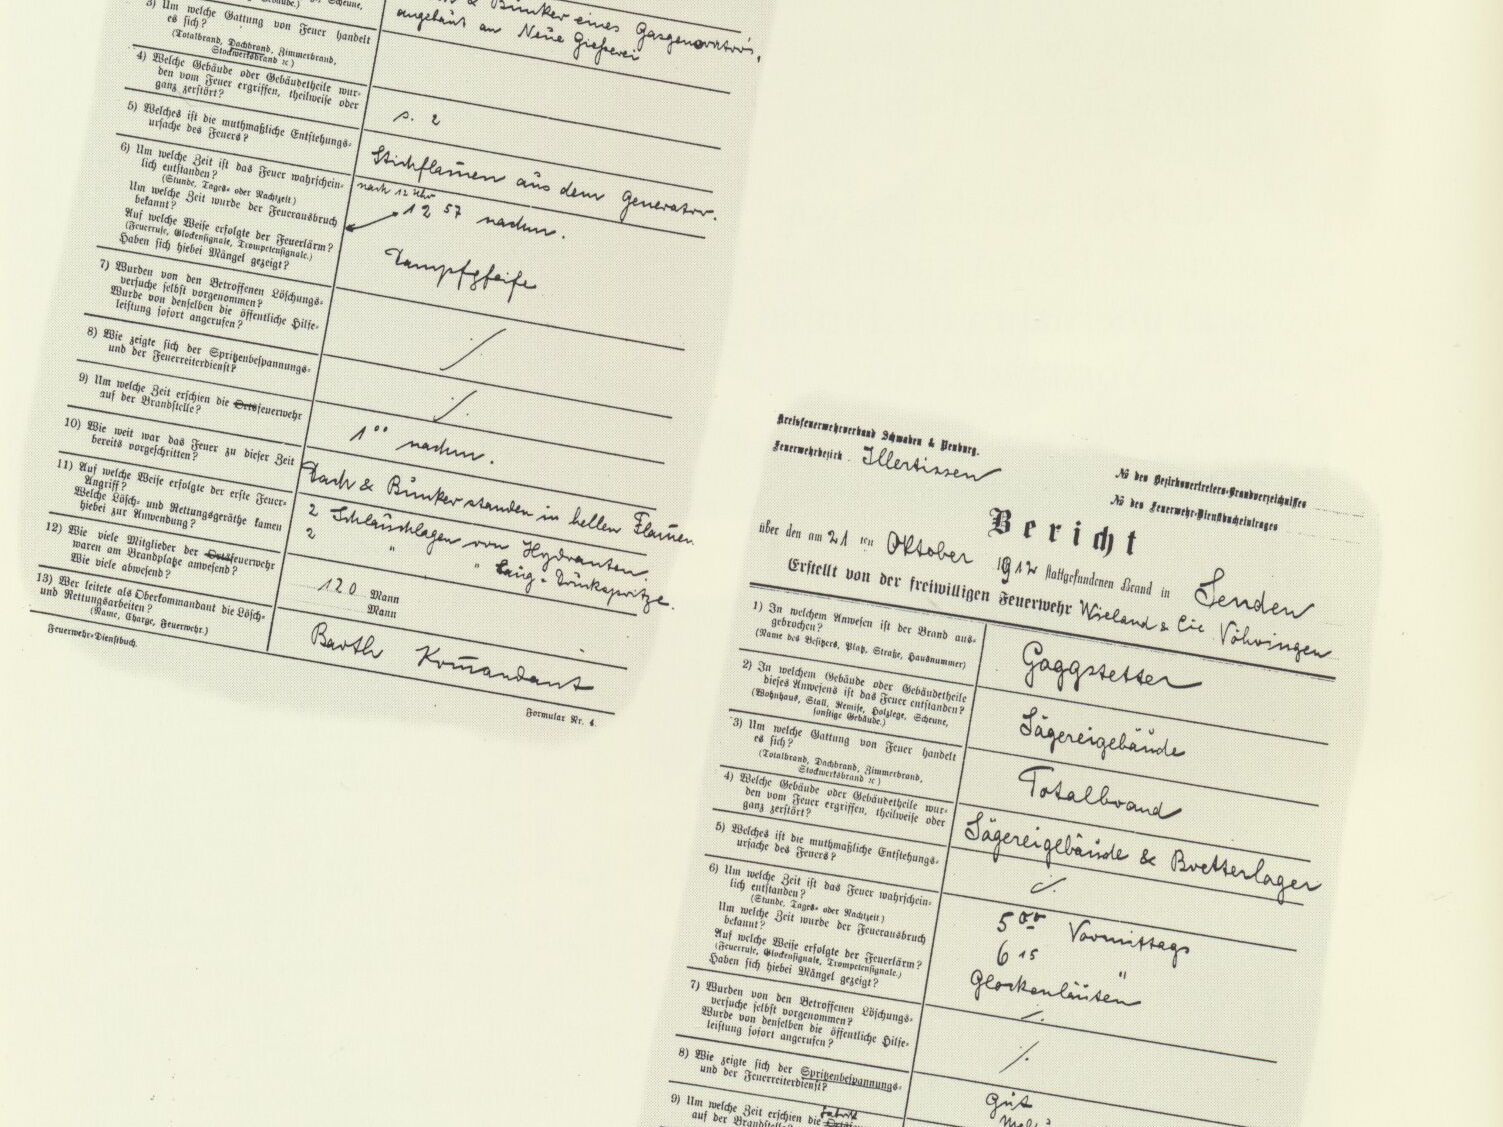 3) Um welche Gattung von Feuer handelt
es sich?
(Totalbrand, Dachbrand, Zimmerbrand,
Stockwerksbrand ꝛc)
& Bunker eines Gasgenerators,
angebaut an Neue Gießerei
4) Welche Gebäude oder Gebäudetheile wur-
den vom Feuer ergriffen, theilweise oder
ganz zerstört?
s. 2
5) Welches ist die muthmaßliche Entstehungs-
ursache des Feuers?
Stichflammen aus dem Generator.
6) Um welche Zeit ist das Feuer wahrschein-
lich entstanden?
(Stunde, Tages- oder Nachtzeit)
nach 12 Uhr
Um welche Zeit wurde der Feuerausbruch
bekannt?
12 57 nachm.
Auf welche Weise erfolgte der Feuerlärm?
(Feuerrufe, Glockensignale, Trompetensignale.)
Haben sich hiebei Mängel gezeigt?
Dampfpfeife
7) Wurden von den Betroffenen Löschungs-
versuche selbst vorgenommen?
Wurde von denselben die öffentliche Hilfe-
leistung sofort angerufen?
8) Wie zeigte sich der Spritzenbespannungs-
und der Feuerreiterdienst?
9) Um welche Zeit erschien die Ortsfeuerwehr
auf der Brandstelle?
1 00 nachm.
10) Wie weit war das Feuer zu dieser Zeit
bereits vorgeschritten?
Dach & Bunker standen in hellen Flammen
11) Auf welche Weise erfolgte der erste Feuer-
Angriff?
Welche Lösch- und Rettungsgeräthe kamen
hiebei zur Anwendung?
2 Schlauchlagen von Hydranten.
2 " " Saug-Druckspritze.
12) Wie viele Mitglieder der Ortsfeuerwehr
waren am Brandplatze anwesend?
Wie viele abwesend?
120 Mann
Mann
13) Wer leitete als Oberkommandant die Lösch-
und Rettungsarbeiten?
(Name, Charge, Feuerwehr.)
Barth Kommandant
Feuerwehr-Dienstbuch.
Formular Nr. 4.
Kreisfeuerwehrverband Schwaben & Neuburg.
Feuerwehrbezirk Illertissen
№ des Bezirksvertreters-Brandverzeichnisses
№ des Feuerwehr-Dienstbucheintrages
Bericht
über den am 21 ten Oktober 1912 stattgefundenen Brand in Senden
Erstellt von der freiwilligen Feuerwehr Wieland & Cie Vöhringen
1) In welchem Anwesen ist der Brand aus-
gebrochen?
(Name des Besitzers, Platz, Straße, Hausnummer)
Gaggstetter
2) In welchem Gebäude oder Gebäudetheile
dieses Anwesens ist das Feuer entstanden?
(Wohnhaus, Stall, Remise, Holzlege, Scheune,
sonstige Gebäude.)
Sägereigebäude
3) Um welche Gattung von Feuer handelt
es sich?
(Totalbrand, Dachbrand, Zimmerbrand,
Stockwerksbrand ꝛc)
Totalbrand
4) Welche Gebäude oder Gebäudetheile wur-
den vom Feuer ergriffen, theilweise oder
ganz zerstört?
Sägereigebäude & Bretterlager
5) Welches ist die muthmaßliche Entstehungs-
ursache des Feuers?
6) Um welche Zeit ist das Feuer wahrschein-
lich entstanden?
(Stunde, Tages- oder Nachtzeit)
5 00 Vormittags
Um welche Zeit wurde der Feuerausbruch
bekannt?
6 15 "
Auf welche Weise erfolgte der Feuerlärm?
(Feuerrufe, Glockensignale, Trompetensignale.)
Haben sich hiebei Mängel gezeigt?
Glockenläuten
7) Wurden von den Betroffenen Löschungs-
versuche selbst vorgenommen?
Wurde von denselben die öffentliche Hilfe-
leistung sofort angerufen?
8) Wie zeigte sich der Spritzenbespannungs-
und der Feuerreiterdienst?
Gut
9) Um welche Zeit erschien die Fabrik
auf der Brandstelle?